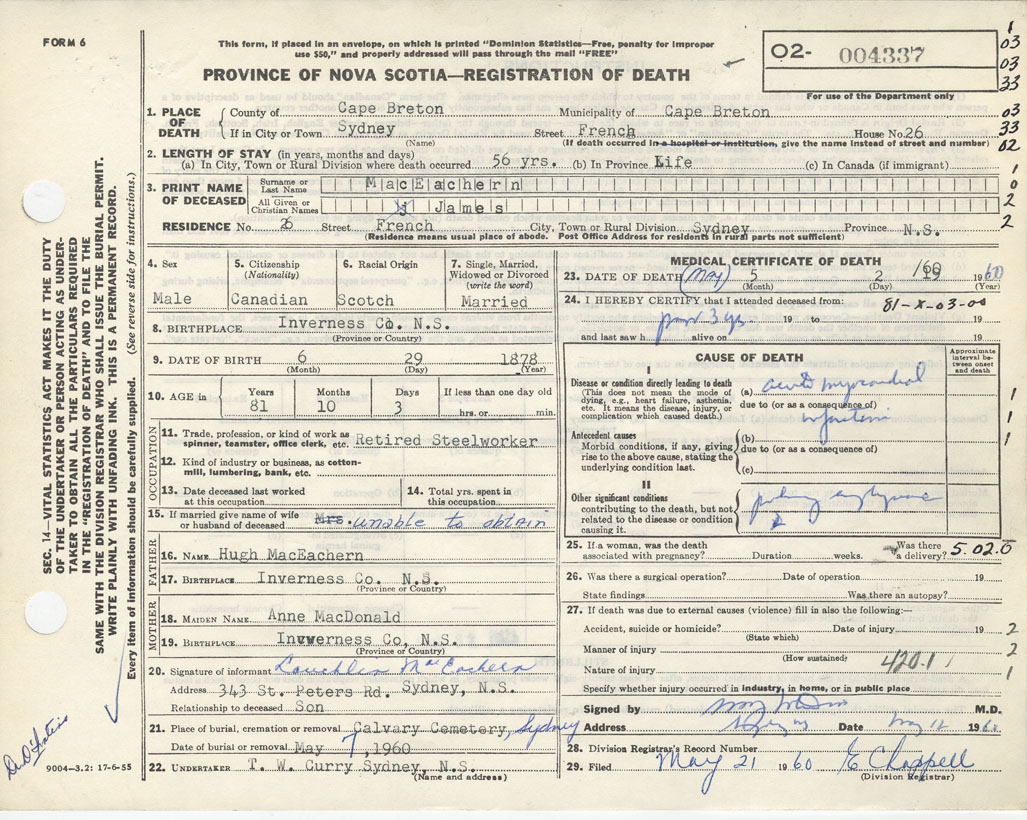 FORM 6
This form, if placed in an envelope, on which is printed "Dominion Statistics—Free, penalty for improper
use $50," and properly addressed will pass through the mail "FREE"
PROVINCE OF NOVA SCOTIA—REGISTRATION OF DEATH
02- 004337
For use of the Department only
1
03
03
33
1. PLACE OF DEATH
County of Cape Breton Municipality of Cape Breton 03
If in City or Town Sydney Street French House No. 26 33
(Name) (If death occurred in a hospital or institution, give the name instead of street and number) 02
2. LENGTH OF STAY (in years, months and days)
(a) In City, Town or Rural Division where death occurred 56 yrs. (b) In Province Life (c) In Canada (if immigrant)
3. PRINT NAME OF DECEASED
Surname or Last Name MacEachern 1 0
All Given or Christian Names James 2
RESIDENCE No. 26 Street French City, Town or Rural Division Sydney Province N.S. 2
(Residence means usual place of abode. Post Office Address for residents in rural parts not sufficient)
4. Sex
Male
5. Citizenship
(Nationality)
Canadian
6. Racial Origin
Scotch
7. Single, Married,
Widowed or Divorced
(write the word)
Married
8. BIRTHPLACE Inverness Co. N.S.
(Province or Country)
9. DATE OF BIRTH 6 29 1878
(Month) (Day) (Year)
10. AGE in
Years Months Days If less than one day old
81 10 3 hrs. or min.
OCCUPATION
11. Trade, profession, or kind of work as
spinner, teamster, office clerk, etc. Retired Steelworker
12. Kind of industry or business, as cotton-
mill, lumbering, bank, etc.
13. Date deceased last worked
at this occupation
14. Total yrs. spent in
this occupation
15. If married give name of wife
or husband of deceased Mrs. unable to obtain
FATHER
16. NAME Hugh MacEachern
17. BIRTHPLACE Inverness Co. N.S.
(Province or Country)
MOTHER
18. MAIDEN NAME Anne MacDonald
19. BIRTHPLACE Inverness Co, N.S.
(Province or Country)
20. Signature of informant Lauchlin MacEachern
Address 343 St. Peters Rd. Sydney, N.S.
Relationship to deceased Son
21. Place of burial, cremation or removal Calvary Cemetery, Sydney
Date of burial or removal May 7, 1960
22. UNDERTAKER T. W. Curry Sydney, N.S.
(Name and address)
MEDICAL CERTIFICATE OF DEATH
23. DATE OF DEATH (May) 5 2 /60 1960
(Month) (Day) (Year)
24. I HEREBY CERTIFY that I attended deceased from: 81-X-03-00
past 3 yrs 19 to 19
and last saw h alive on 19
CAUSE OF DEATH
Approximate
interval be-
tween onset
and death
I
Disease or condition directly leading to death
(This does not mean the mode of
dying, e.g., heart failure, asthenia,
etc. It means the disease, injury, or
complication which caused death.)
(a) acute myocardial
due to (or as a consequence of)
infarction
1
1
1
Antecedent causes
Morbid conditions, if any, giving
rise to the above cause, stating the
underlying condition last.
(b)
due to (or as a consequence of)
(c)
II
Other significant conditions
contributing to the death, but not
related to the disease or condition
causing it.
25. If a woman, was the death
associated with pregnancy? Duration weeks. Was there
a delivery? 5.02.0
26. Was there a surgical operation? Date of operation 19
State findings Was there an autopsy?
27. If death was due to external causes (violence) fill in also the following:—
Accident, suicide or homicide? Date of injury 19 2
(State which)
Manner of injury 2
(How sustained)
Nature of injury 420.1 1
Specify whether injury occurred in industry, in home, or in public place
Signed by M.D.
Address Sydney Date May 12 1960
28. Division Registrar's Record Number
29. Filed May 21 1960 E Chappell
(Division Registrar)
SEC. 14—VITAL STATISTICS ACT MAKES IT THE DUTY
OF THE UNDERTAKER OR PERSON ACTING AS UNDER-
TAKER TO OBTAIN ALL THE PARTICULARS REQUIRED
IN THE "REGISTRATION OF DEATH" AND TO FILE THE
SAME WITH THE DIVISION REGISTRAR WHO SHALL ISSUE THE BURIAL PERMIT.
WRITE PLAINLY WITH UNFADING INK. THIS IS A PERMANENT RECORD.
Every item of information should be carefully supplied. (See reverse side for instructions.)
9004-3.2: 17-6-55